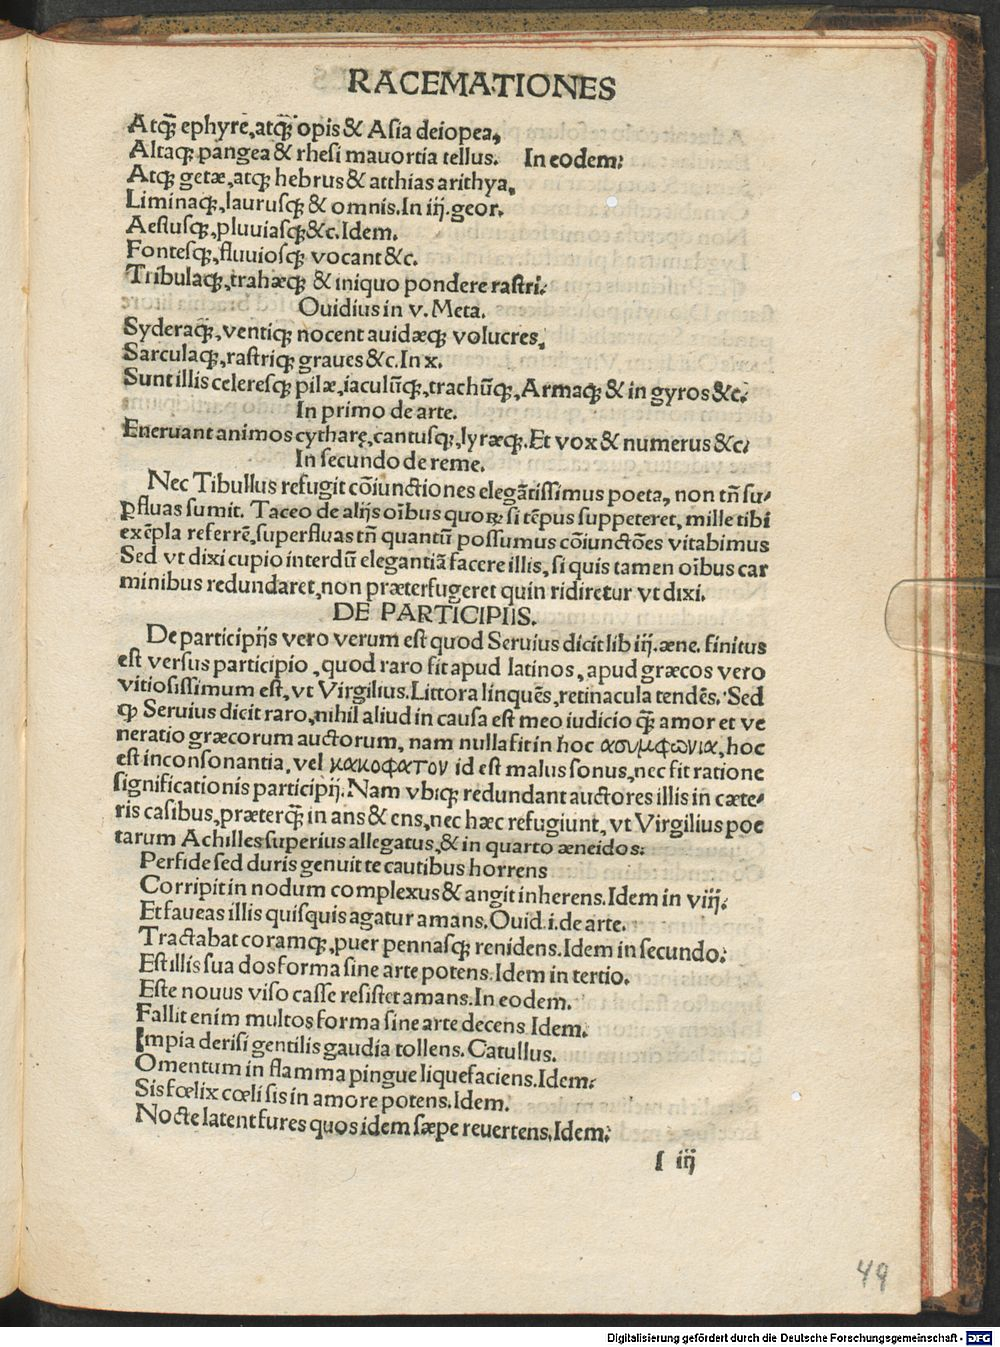 RACEMATIONES
Atq̃ ephyre,atq̃ opis & Asia deiopea,
Altaqꝫ pangea & rhesi mauortia tellus. In eodem:
Atqꝫ getæ,atqꝫ hebrus & atthias arithya,
Liminaqꝫ,laurusqꝫ & omnis.In iij.geor.
Aestusqꝫ,pluuiasqꝫ &c.Idem.
Fontesqꝫ,fluuiosqꝫ vocant &c.
Tribulaqꝫ,trahæqꝫ & iniquo pondere rastri:
Ouidius in v. Meta.
Syderaqꝫ,ventiqꝫ nocent auidæqꝫ volucres,
Sarculaqꝫ,rastriqꝫ graues &c.In x.
Sunt illis celeresqꝫ pilæ,iaculũqꝫ,trachũqꝫ,Armaqꝫ & in gyros &c:
In primo de arte.
Eneruant animos cytharę,cantusqꝫ,lyræqꝫ.Et vox & numerus &c:
In secundo de reme.
Nec Tibullus refugit cõiunctiones elegãtissimus poeta, non tñ su-
ꝑfluas sumit. Taceo de alijs oĩbus quoꝝ si tẽpus suppeteret, mille tibi
exẽpla referrẽ,superfluas tñ quantũ possumus cõiunctões vitabimus
Sed vt dixi cupio interdũ elegantiã facere illis, si quis tamen oĩbus car
minibus redundaret,non præterfugeret quin ridiretur vt dixi.
DE PARTICIPIIS.
De participijs vero verum est quod Seruius dicit lib iij.æne. finitus
est versus participio ,quod raro fit apud latinos, apud græcos vero
vitiosissimum est, vt Virgilius.Littora linquẽs,retinacula tendẽs. Sed
qꝫ Seruius dicit raro,nihil aliud in causa est meo iudicio q̃ amor et ve
neratio græcorum auctorum, nam nulla fit in hoc ασυμφωνια,hoc
est inconsonantia, vel κακοφατον id est malus sonus,nec fit ratione
significationis participij. Nam vbiqꝫ redundant auctores illis in cæte-
ris casibus,præterq̃ in ans & ens,nec hæc refugiunt, vt Virgilius poe
tarum Achilles superius allegatus,& in quarto æneidos:
Perfide sed duris genuit te cautibus horrens
Corripit in nodum complexus & angit inherens.Idem in viij:
Et faueas illis quisquis agatur amans.Ouid.i.de arte.
Tractabat coramqꝫ,puer pennasqꝫ renidens.Idem in secundo:
Est illis sua dos forma sine arte potens.Idem in tertio.
Este nouus viso casse resistet amans.In eodem.
Fallit enim multos forma sine arte decens Idem.
Impia derisi gentilis gaudia tollens. Catullus.
Omentum in flamma pingue liquefaciens.Idem:
Sis fœlix cœli sis in amore potens.Idem.
Nocte latent fures quos idem sæpe reuertens.Idem:
s iij
49
Digitalisierung gefördert durch die Deutsche Forschungsgemeinschaft - DFG